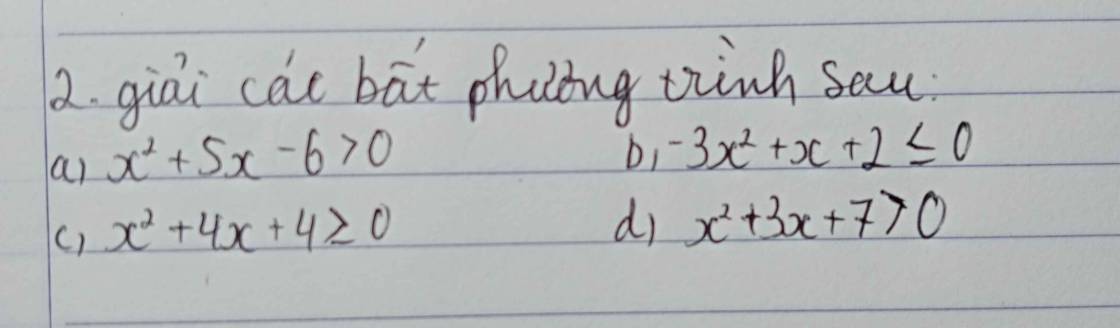 2. giải các bất phương trình sau:
a, x² + 5x - 6 > 0 b, -3x² + x + 2 ≤ 0
c, x² + 4x + 4 ≥ 0 d, x² + 3x + 7 > 0